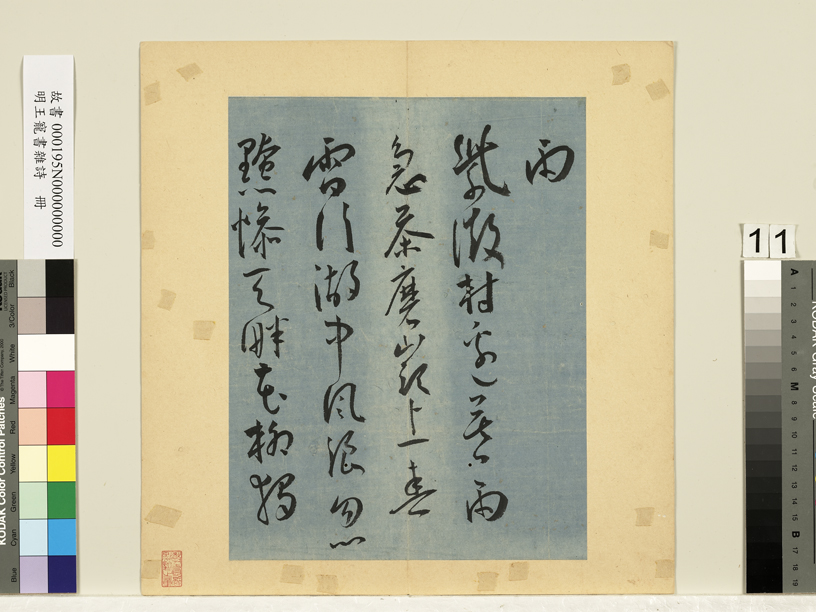 故書 000195N000000000
明王寵書雜詩 冊
雨
紫微村邊暮雨
急茶磨嶺上春
雷行湖中風浪忽
黯慘天畔花柳獨
11
KODAK Color Control Patches
Blue
Cyan
Green
Yellow
Red
Magenta
White
3/Color
Black
A 1 2 3 4 5 6 M 8 9 10 11 12 13 14 15 B 17 18 19